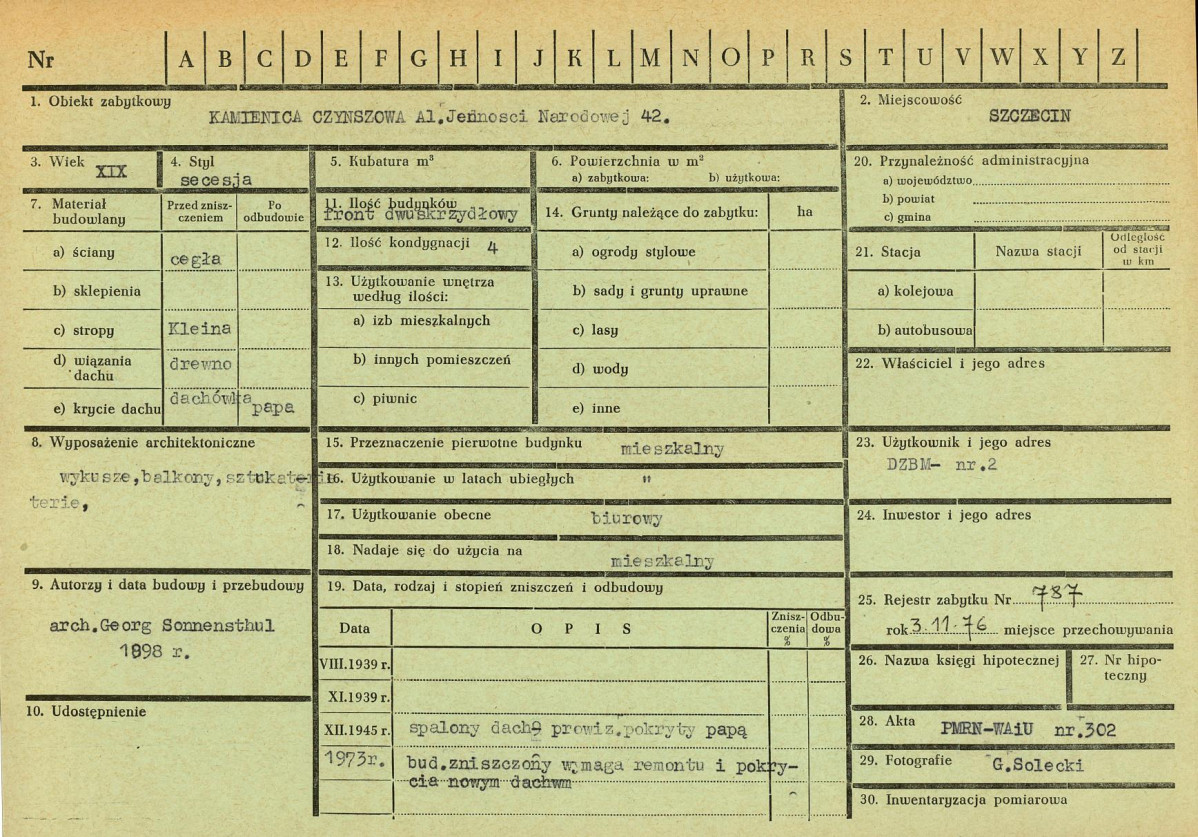 Nr A B C D E F G H I J K L M N O P R S T U V W X Y Z
1. Obiekt zabytkowy
KAMIENICA CZYNSZOWA Al.Jednosci Narodowej 42.
2. Miejscowość
SZCZECIN
3. Wiek XIX
4. Styl
secesja
5. Kubatura m³
6. Powierzchnia w m²
a) zabytkowa: b) użytkowa:
7. Materiał budowlany
Przed zniszczeniem
Po odbudowie
a) ściany cegła
b) sklepienia
c) stropy Kleina
d) wiązania dachu drewno
e) krycie dachu dachówka papa
8. Wyposażenie architektoniczne
wykusze,balkony,sztukate-
terie,
9. Autorzy i data budowy i przebudowy
arch.Georg Sonnensthul
1898 r.
10. Udostępnienie
11. Ilość budynków
front dwuskrzydłowy
12. Ilość kondygnacji 4
13. Użytkowanie wnętrza
według ilości:
a) izb mieszkalnych
b) innych pomieszczeń
c) piwnic
14. Grunty należące do zabytku: ha
a) ogrody stylowe
b) sady i grunty uprawne
c) lasy
d) wody
e) inne
15. Przeznaczenie pierwotne budynku mieszkalny
16. Użytkowanie w latach ubiegłych "
17. Użytkowanie obecne biurowy
18. Nadaje się do użycia na mieszkalny
19. Data, rodzaj i stopień zniszczeń i odbudowy
Data OPIS Zniszczenia % Odbudowa %
VIII.1939 r.
XI.1939 r.
XII.1945 r. spalony dach, prowiz.pokryty papą
1973r. bud.zniszczony wymaga remontu i pokry-
cia nowym dachwm
20. Przynależność administracyjna
a) województwo
b) powiat
c) gmina
21. Stacja Nazwa stacji Odległość od stacji w km
a) kolejowa
b) autobusowa
22. Właściciel i jego adres
23. Użytkownik i jego adres
DZBM- nr.2
24. Inwestor i jego adres
25. Rejestr zabytku Nr 787
rok 3.11.76 miejsce przechowywania
26. Nazwa księgi hipotecznej
27. Nr hipoteczny
28. Akta PMRN-WAiU nr.302
29. Fotografie G.Solecki
30. Inwentaryzacja pomiarowa